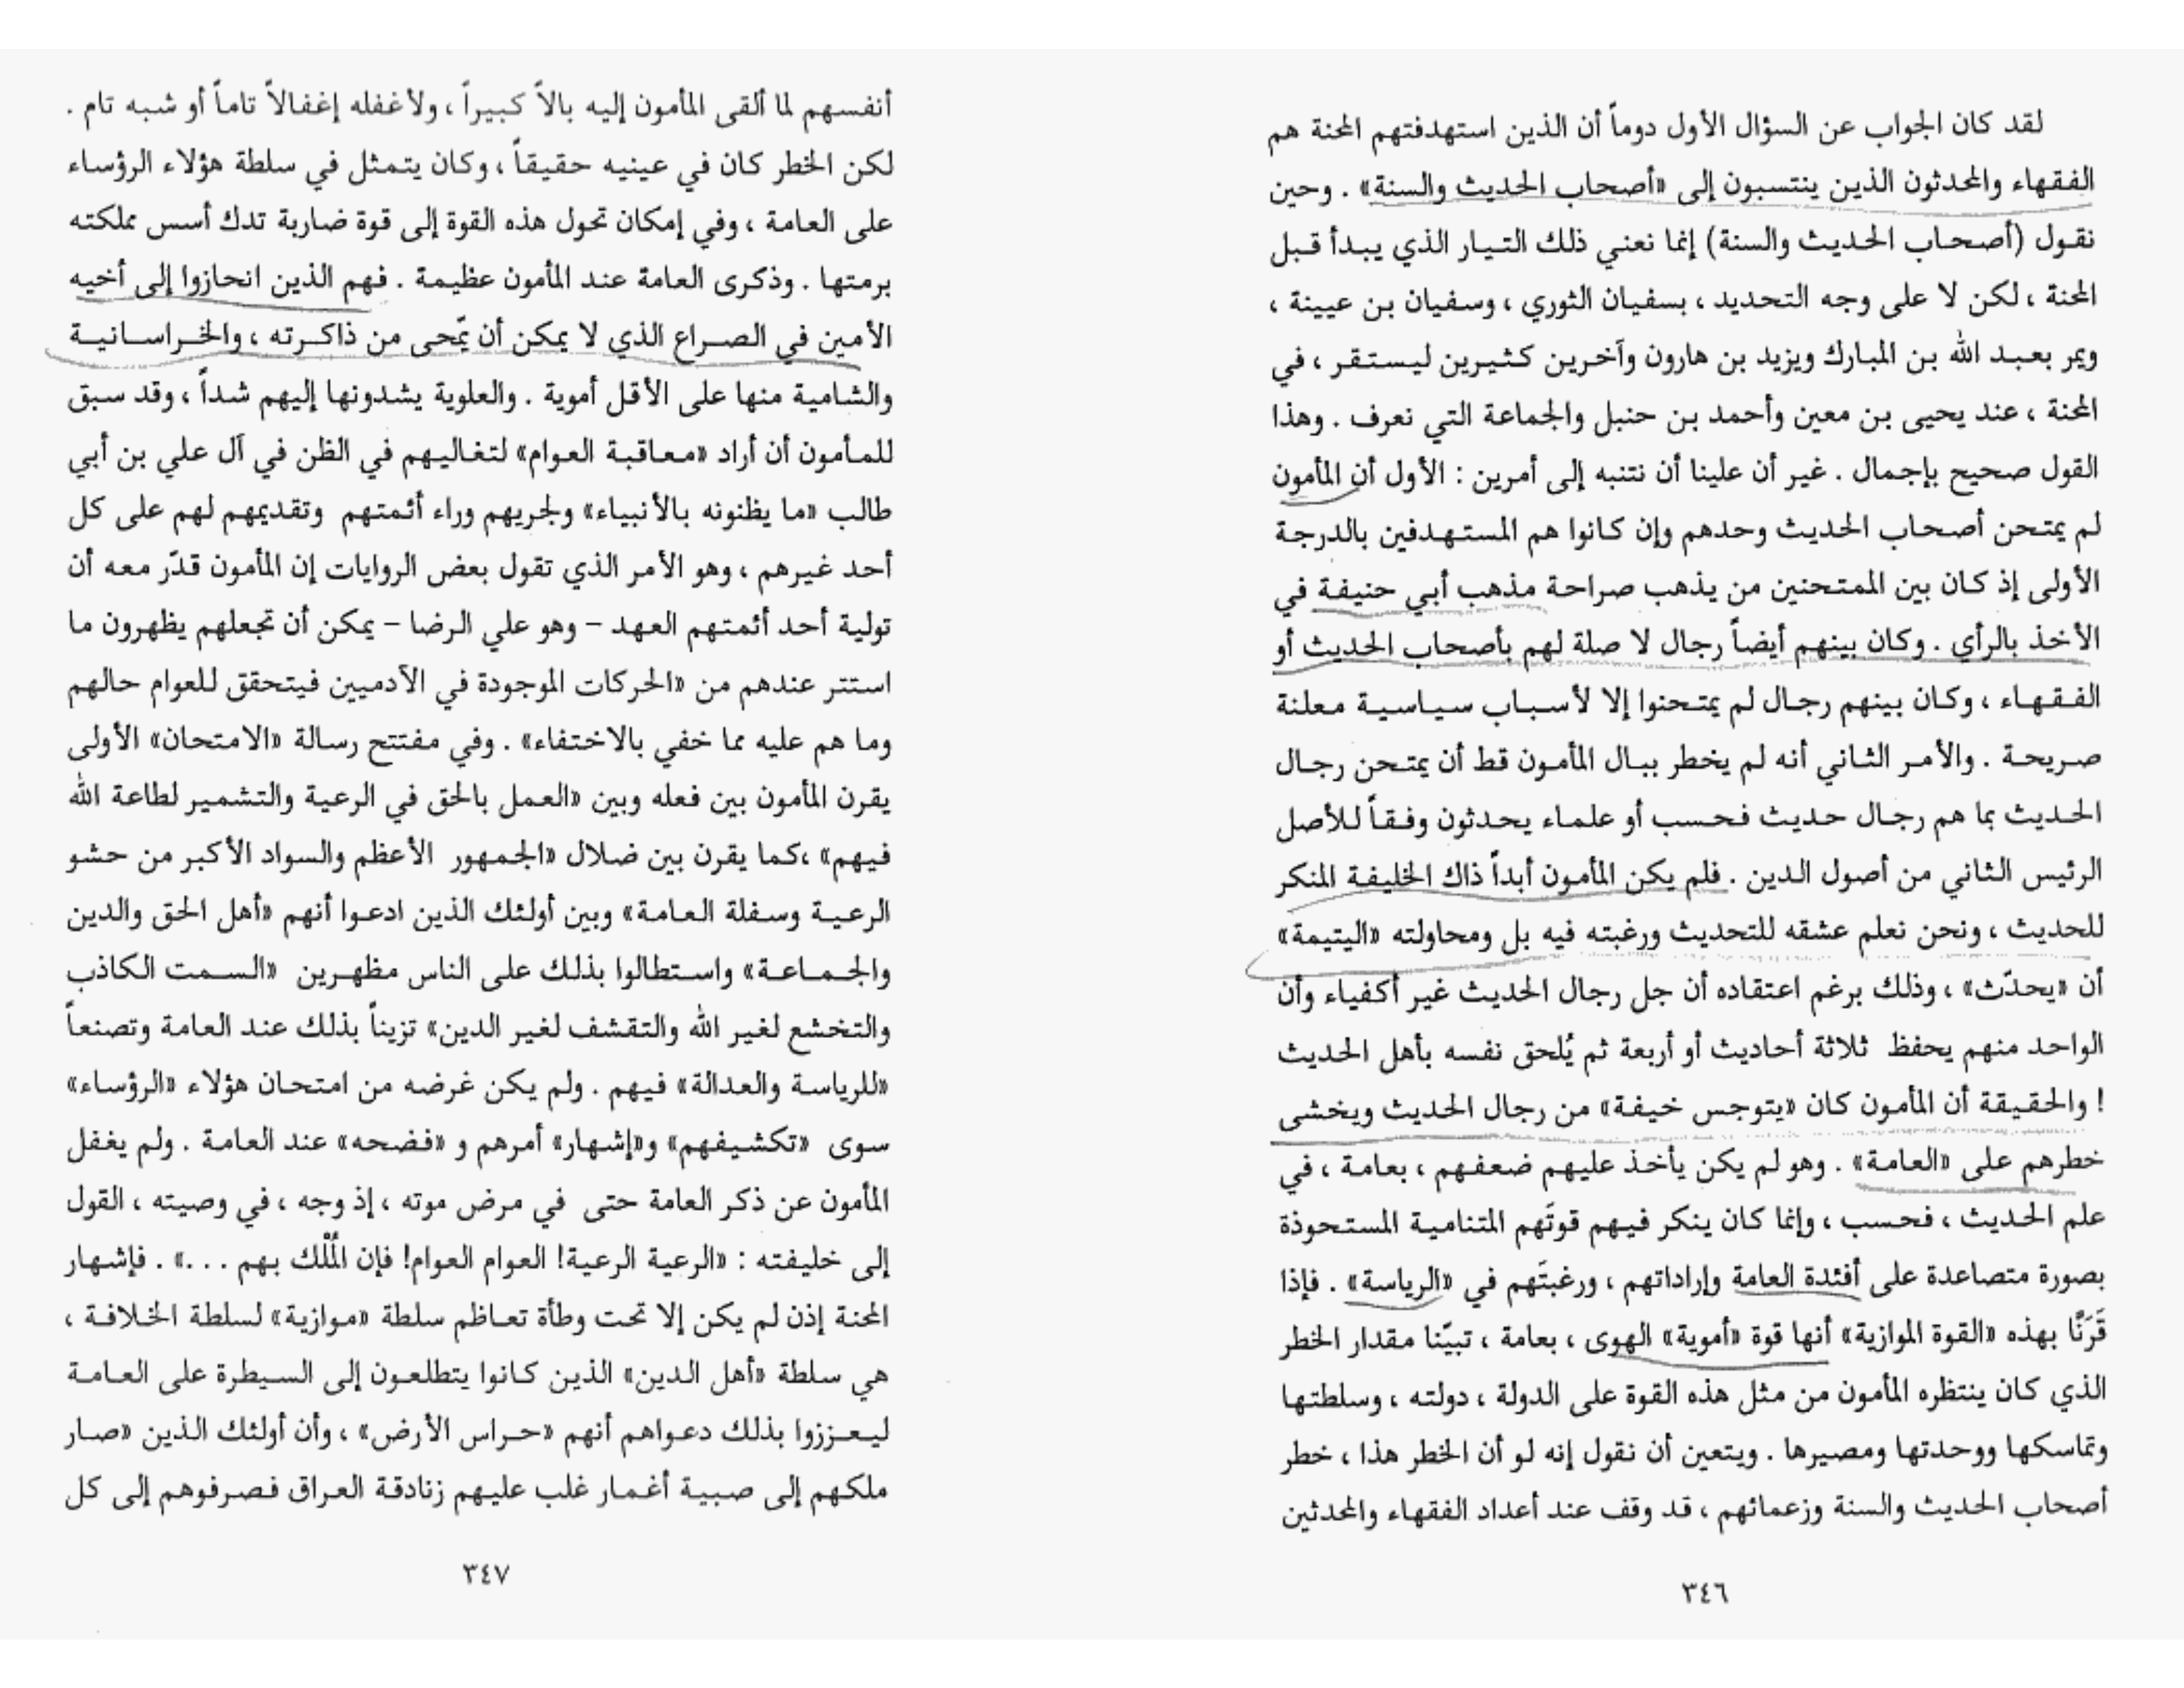 لقد كان الجواب عن السؤال الأول دوماً أن الذين استهدفتهم المحنة هم
الفقهاء والمحدثون الذين ينتسبون إلى «أصحاب الحديث والسنة» . وحين
نقول (أصحاب الحديث والسنة) إنما نعني ذلك التيار الذي يبدأ قبل
المحنة ، لكن لا على وجه التحديد ، بسفيان الثوري ، وسفيان بن عيينة ،
ويمر بعبد الله بن المبارك ويزيد بن هارون وآخرين كثيرين ليستقر ، في
المحنة ، عند يحيى بن معين وأحمد بن حنبل والجماعة التي نعرف . وهذا
القول صحيح بإجمال . غير أن علينا أن نتنبه إلى أمرين : الأول أن المأمون
لم يمتحن أصحاب الحديث وحدهم وإن كانوا هم المستهدفين بالدرجة
الأولى إذ كان بين الممتحنين من يذهب صراحة مذهب أبي حنيفة في
الأخذ بالرأي . وكان بينهم أيضاً رجال لا صلة لهم بأصحاب الحديث أو
الفقهاء ، وكان بينهم رجال لم يمتحنوا إلا لأسباب سياسية معلنة
صريحة . والأمر الثاني أنه لم يخطر ببال المأمون قط أن يمتحن رجال
الحديث بما هم رجال حديث فحسب أو علماء يحدثون وفقاً للأصل
الرئيس الثاني من أصول الدين . فلم يكن المأمون أبداً ذاك الخليفة المنكر
للحديث ، ونحن نعلم عشقه للتحديث ورغبته فيه بل ومحاولته «اليتيمة»
أن «يحدّث» ، وذلك برغم اعتقاده أن جل رجال الحديث غير أكفياء وأن
الواحد منهم يحفظ ثلاثة أحاديث أو أربعة ثم يُلحق نفسه بأهل الحديث
! والحقيقة أن المأمون كان «يتوجس خيفة» من رجال الحديث ويخشى
خطرهم على «العامة» . وهو لم يكن يأخذ عليهم ضعفهم ، بعامة ، في
علم الحديث ، فحسب ، وإنما كان ينكر فيهم قوتَهم المتنامية المستحوذة
بصورة متصاعدة على أفئدة العامة وإراداتهم ، ورغبتَهم في «الرياسة» . فإذا
قَرَنّا بهذه «القوة الموازية» أنها قوة «أموية» الهوى ، بعامة ، تبيّنا مقدار الخطر
الذي كان ينتظره المأمون من مثل هذه القوة على الدولة ، دولته ، وسلطتها
وتماسكها ووحدتها ومصيرها . ويتعين أن نقول إنه لو أن الخطر هذا ، خطر
أصحاب الحديث والسنة وزعمائهم ، قد وقف عند أعداد الفقهاء والمحدثين
٣٤٦
أنفسهم لما ألقى المأمون إليه بالاً كبيراً ، ولأغفله إغفالاً تاماً أو شبه تام .
لكن الخطر كان في عينيه حقيقاً ، وكان يتمثل في سلطة هؤلاء الرؤساء
على العامة ، وفي إمكان تحول هذه القوة إلى قوة ضاربة تدك أسس مملكته
برمتها . وذكرى العامة عند المأمون عظيمة . فهم الذين انحازوا إلى أخيه
الأمين في الصراع الذي لا يمكن أن يمّحى من ذاكرته ، والخراسانية
والشامية منها على الأقل أموية . والعلوية يشدونها إليهم شداً ، وقد سبق
للمأمون أن أراد «معاقبة العوام» لتغاليهم في الظن في آل علي بن أبي
طالب «ما يظنونه بالأنبياء» ولجريهم وراء أئمتهم وتقديمهم لهم على كل
أحد غيرهم ، وهو الأمر الذي تقول بعض الروايات إن المأمون قدّر معه أن
تولية أحد أئمتهم العهد – وهو علي الرضا – يمكن أن تجعلهم يظهرون ما
استتر عندهم من «الحركات الموجودة في الآدميين فيتحقق للعوام حالهم
وما هم عليه مما خفي بالاختفاء» . وفي مفتتح رسالة «الامتحان» الأولى
يقرن المأمون بين فعله وبين «العمل بالحق في الرعية والتشمير لطاعة الله
فيهم» ،كما يقرن بين ضلال «الجمهور الأعظم والسواد الأكبر من حشو
الرعية وسفلة العامة» وبين أولئك الذين ادعوا أنهم «أهل الحق والدين
والجماعة» واستطالوا بذلك على الناس مظهرين «السمت الكاذب
والتخشع لغير الله والتقشف لغير الدين» تزيناً بذلك عند العامة وتصنعاً
«للرياسة والعدالة» فيهم . ولم يكن غرضه من امتحان هؤلاء «الرؤساء»
سوى «تكشيفهم» و«إشهار» أمرهم و «فضحه» عند العامة . ولم يغفل
المأمون عن ذكر العامة حتى في مرض موته ، إذ وجه ، في وصيته ، القول
إلى خليفته : «الرعية الرعية! العوام العوام! فإن المُلْك بهم . . .» . فإشهار
المحنة إذن لم يكن إلا تحت وطأة تعاظم سلطة «موازية» لسلطة الخلافة ،
هي سلطة «أهل الدين» الذين كانوا يتطلعون إلى السيطرة على العامة
ليعززوا بذلك دعواهم أنهم «حراس الأرض» ، وأن أولئك الذين «صار
ملكهم إلى صبية أغمار غلب عليهم زنادقة العراق فصرفوهم إلى كل
٣٤٧